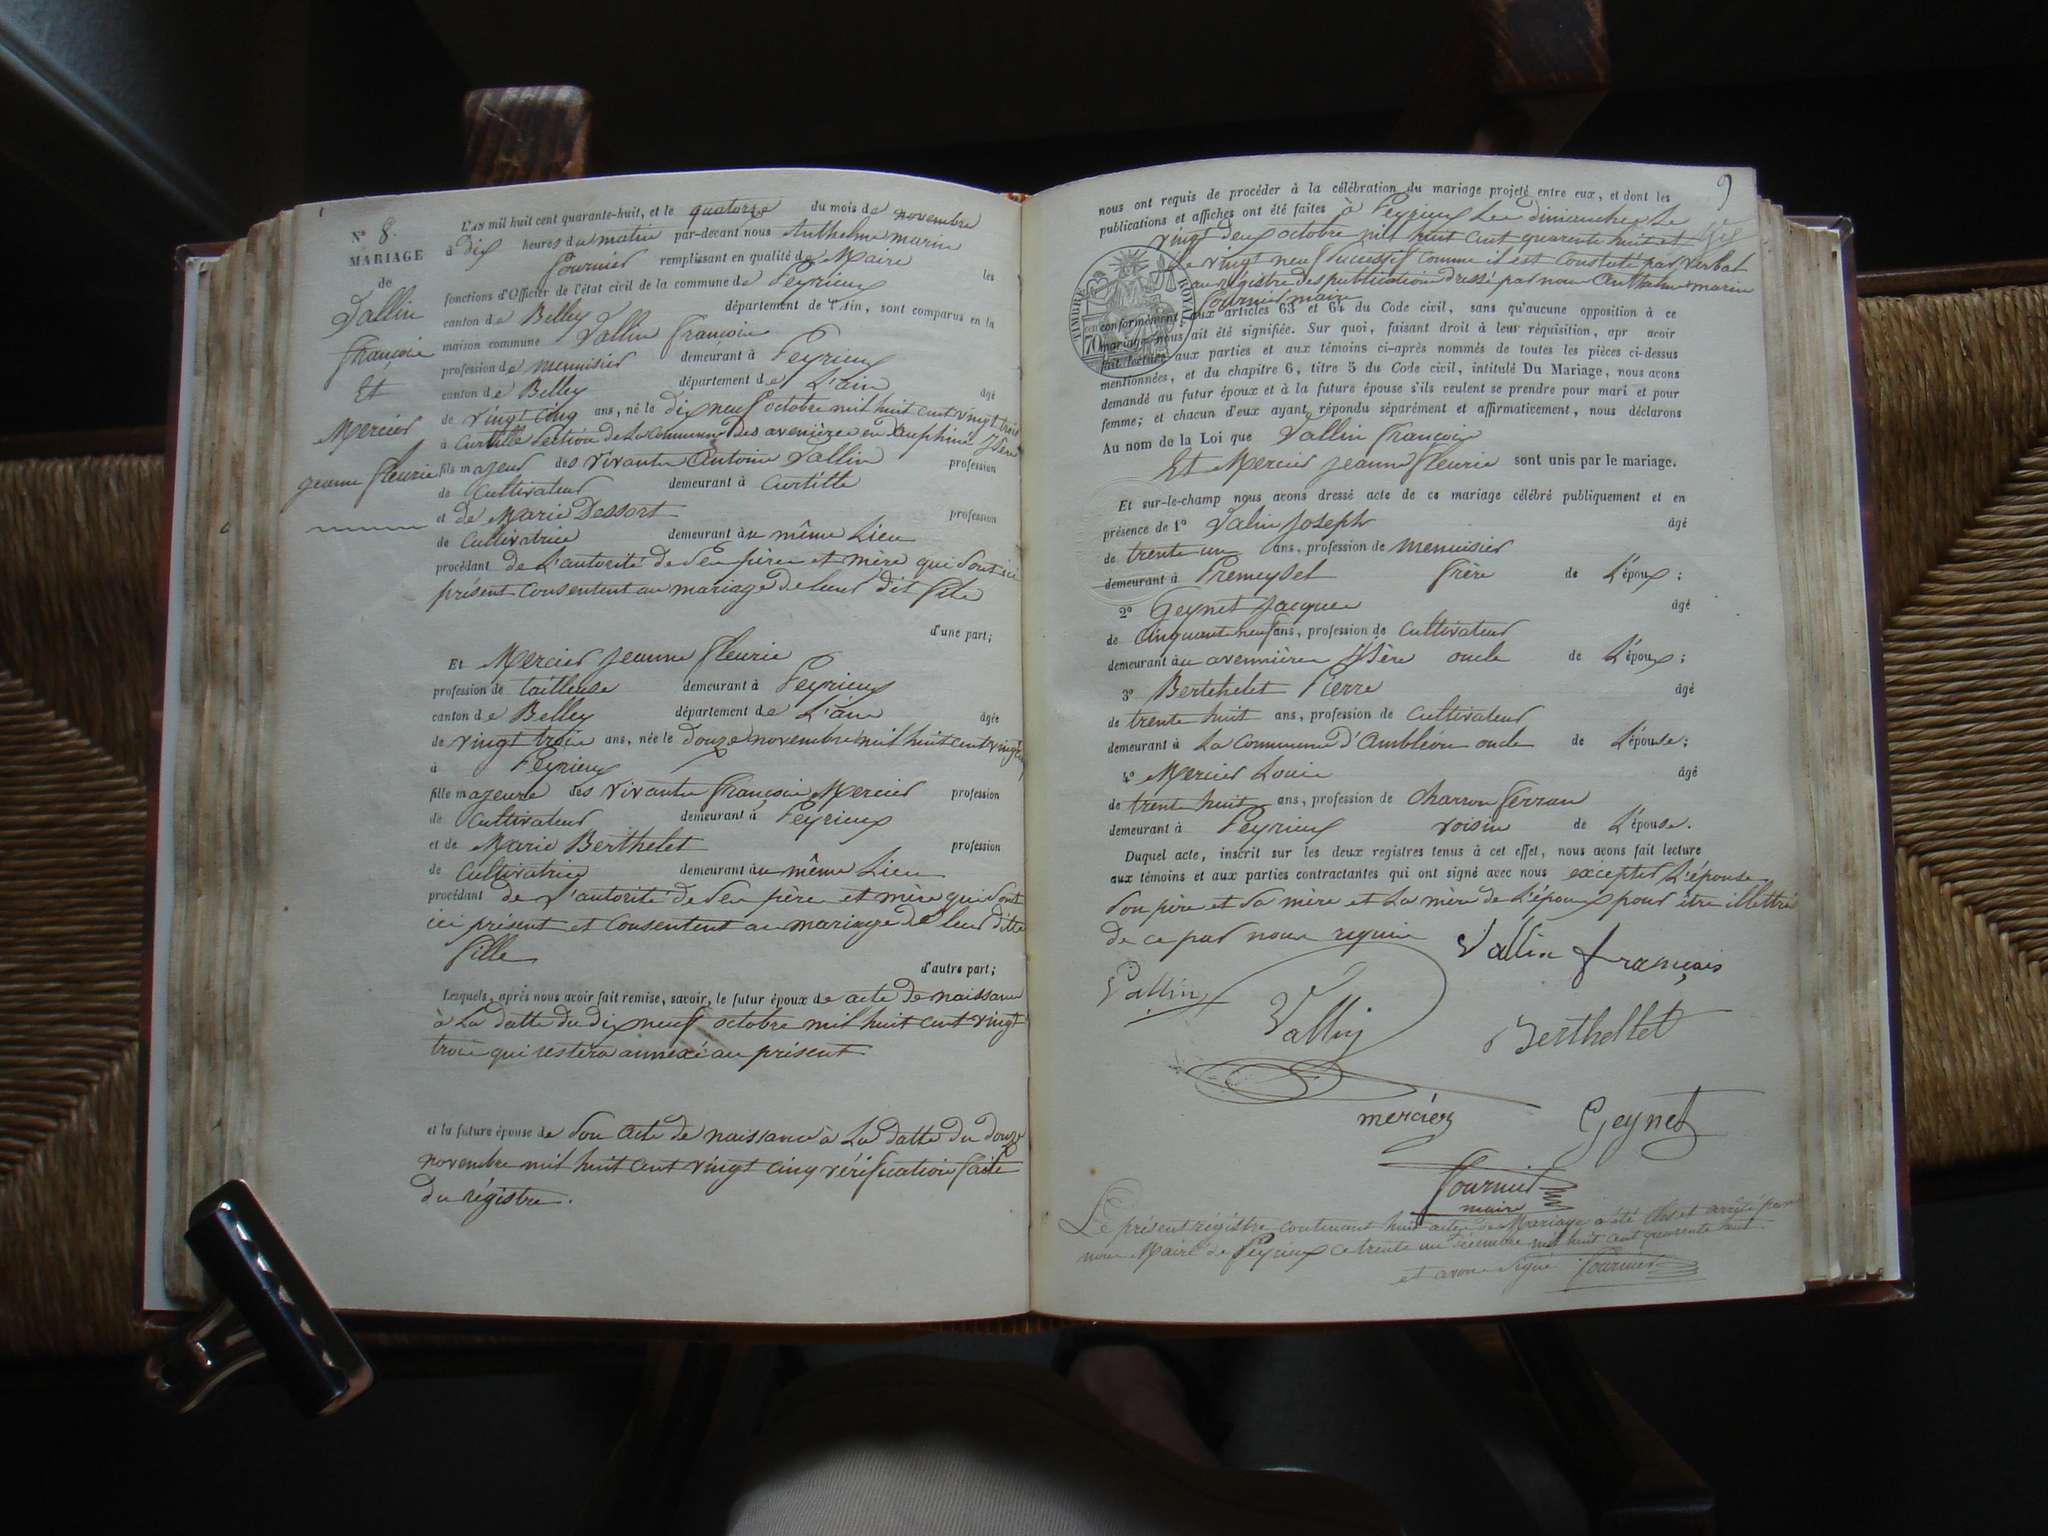 N° 8.
MARIAGE
de
Vallin
françois
Et
Mercier
jeanne fleurie
L'AN mil huit cent quarante-huit, et le quatorze du mois de novembre
à dix heures du matin par-devant nous Anthelme marin
fournier remplissant en qualité de Maire les
fonctions d'Officier de l'état civil de la commune de Peyrieux
canton de Belley département de l'Ain, sont comparus en la
maison commune Vallin françois
profession de menuisier demeurant à Peyrieux
canton de Belley département de L'ain âgé
de vingt cinq ans, né le dix neuf octobre mil huit cent vingt trois
à Curtille Section de La Commune des avenières en Dauphiné Isère
fils majeur des vivants Antoine Vallin profession
de Cultivateur demeurant à Curtille
et de Marie Dessort profession
de Cultivatrice demeurant au même Lieu
procédant de L'autorité de Ses père et mère qui Sont ici
présent Consentent au mariage de leur dit fils
d'une part;
Et Mercier jeanne fleurie
profession de tailleuse demeurant à Peyrieux
canton de Belley département de L'ain âgée
de vingt trois ans, née le douze novembre mil huit cent vingt
à Peyrieux
fille majeure des vivants françois Mercier profession
de Cultivateur demeurant à Peyrieux
et de Marie Berthelet profession
de Cultivatrice demeurant au même Lieu
procédant de L'autorité de Ses père et mère qui Sont
ici présent et Consentent au mariage de leur ditte
fille
d'autre part;
Lesquels, après nous avoir fait remise, savoir, le futur époux de acte de naissance
à La datte du dix neuf octobre mil huit cent vingt
trois qui restera annexé au présent
et la future épouse de Son Acte de naissance à La datte du douze
novembre mil huit cent vingt cinq vérification faite
du régistre.
9
nous ont requis de procéder à la célébration du mariage projeté entre eux, et dont les
publications et affiches ont été faites à Peyrieux Les dimanches Le
vingt deux octobre mil huit cent quarente huit et
Le vingt neuf Successif Comme il est Constaté par verbal
au régistre des publications dressé par nous Anthelme marin
fournier maire
TIMBRE ROYAL
70
conformément aux articles 63 et 64 du Code civil, sans qu'aucune opposition à ce
mariage nous ait été signifiée. Sur quoi, faisant droit à leur réquisition, apr avoir
fait lecture aux parties et aux témoins ci-après nommés de toutes les pièces ci-dessus
mentionnées, et du chapitre 6, titre 5 du Code civil, intitulé Du Mariage, nous avons
demandé au futur époux et à la future épouse s'ils veulent se prendre pour mari et pour
femme; et chacun d'eux ayant répondu séparément et affirmativement, nous déclarons
Au nom de la Loi que Vallin françois
Et Mercier jeanne fleurie sont unis par le mariage.
Et sur-le-champ nous avons dressé acte de ce mariage célébré publiquement et en
présence de 1° Valin Joseph âgé
de trente un ans, profession de menuisier
demeurant à Premeyzel frère de L'époux;
2° Geynet Jacques âgé
de Cinquante neuf ans, profession de Cultivateur
demeurant au avennières Isère oncle de L'époux;
3° Berthelet Pierre âgé
de trente huit ans, profession de Cultivateur
demeurant à La Commune d'Ambléon oncle de L'épouse;
4° Mercier Louis âgé
de trente huit ans, profession de Charron ferran
demeurant à Peyrieux voisin de L'épouse.
Duquel acte, inscrit sur les deux registres tenus à cet effet, nous avons fait lecture
aux témoins et aux parties contractantes qui ont signé avec nous excepter L'épouse,
Son père et Sa mère et La mère de L'époux pour être illettré
de ce par nous requis
Vallin françois
Vallin
Vallin
Berthellet
mercier
Geynet
fournier
maire
Le présent régistre contenant huit actes de Mariage a été Clos et arrêté par
nous Maire de Peyrieux ce trente un décembre mil huit cent quarente huit
et avons Signé fournier